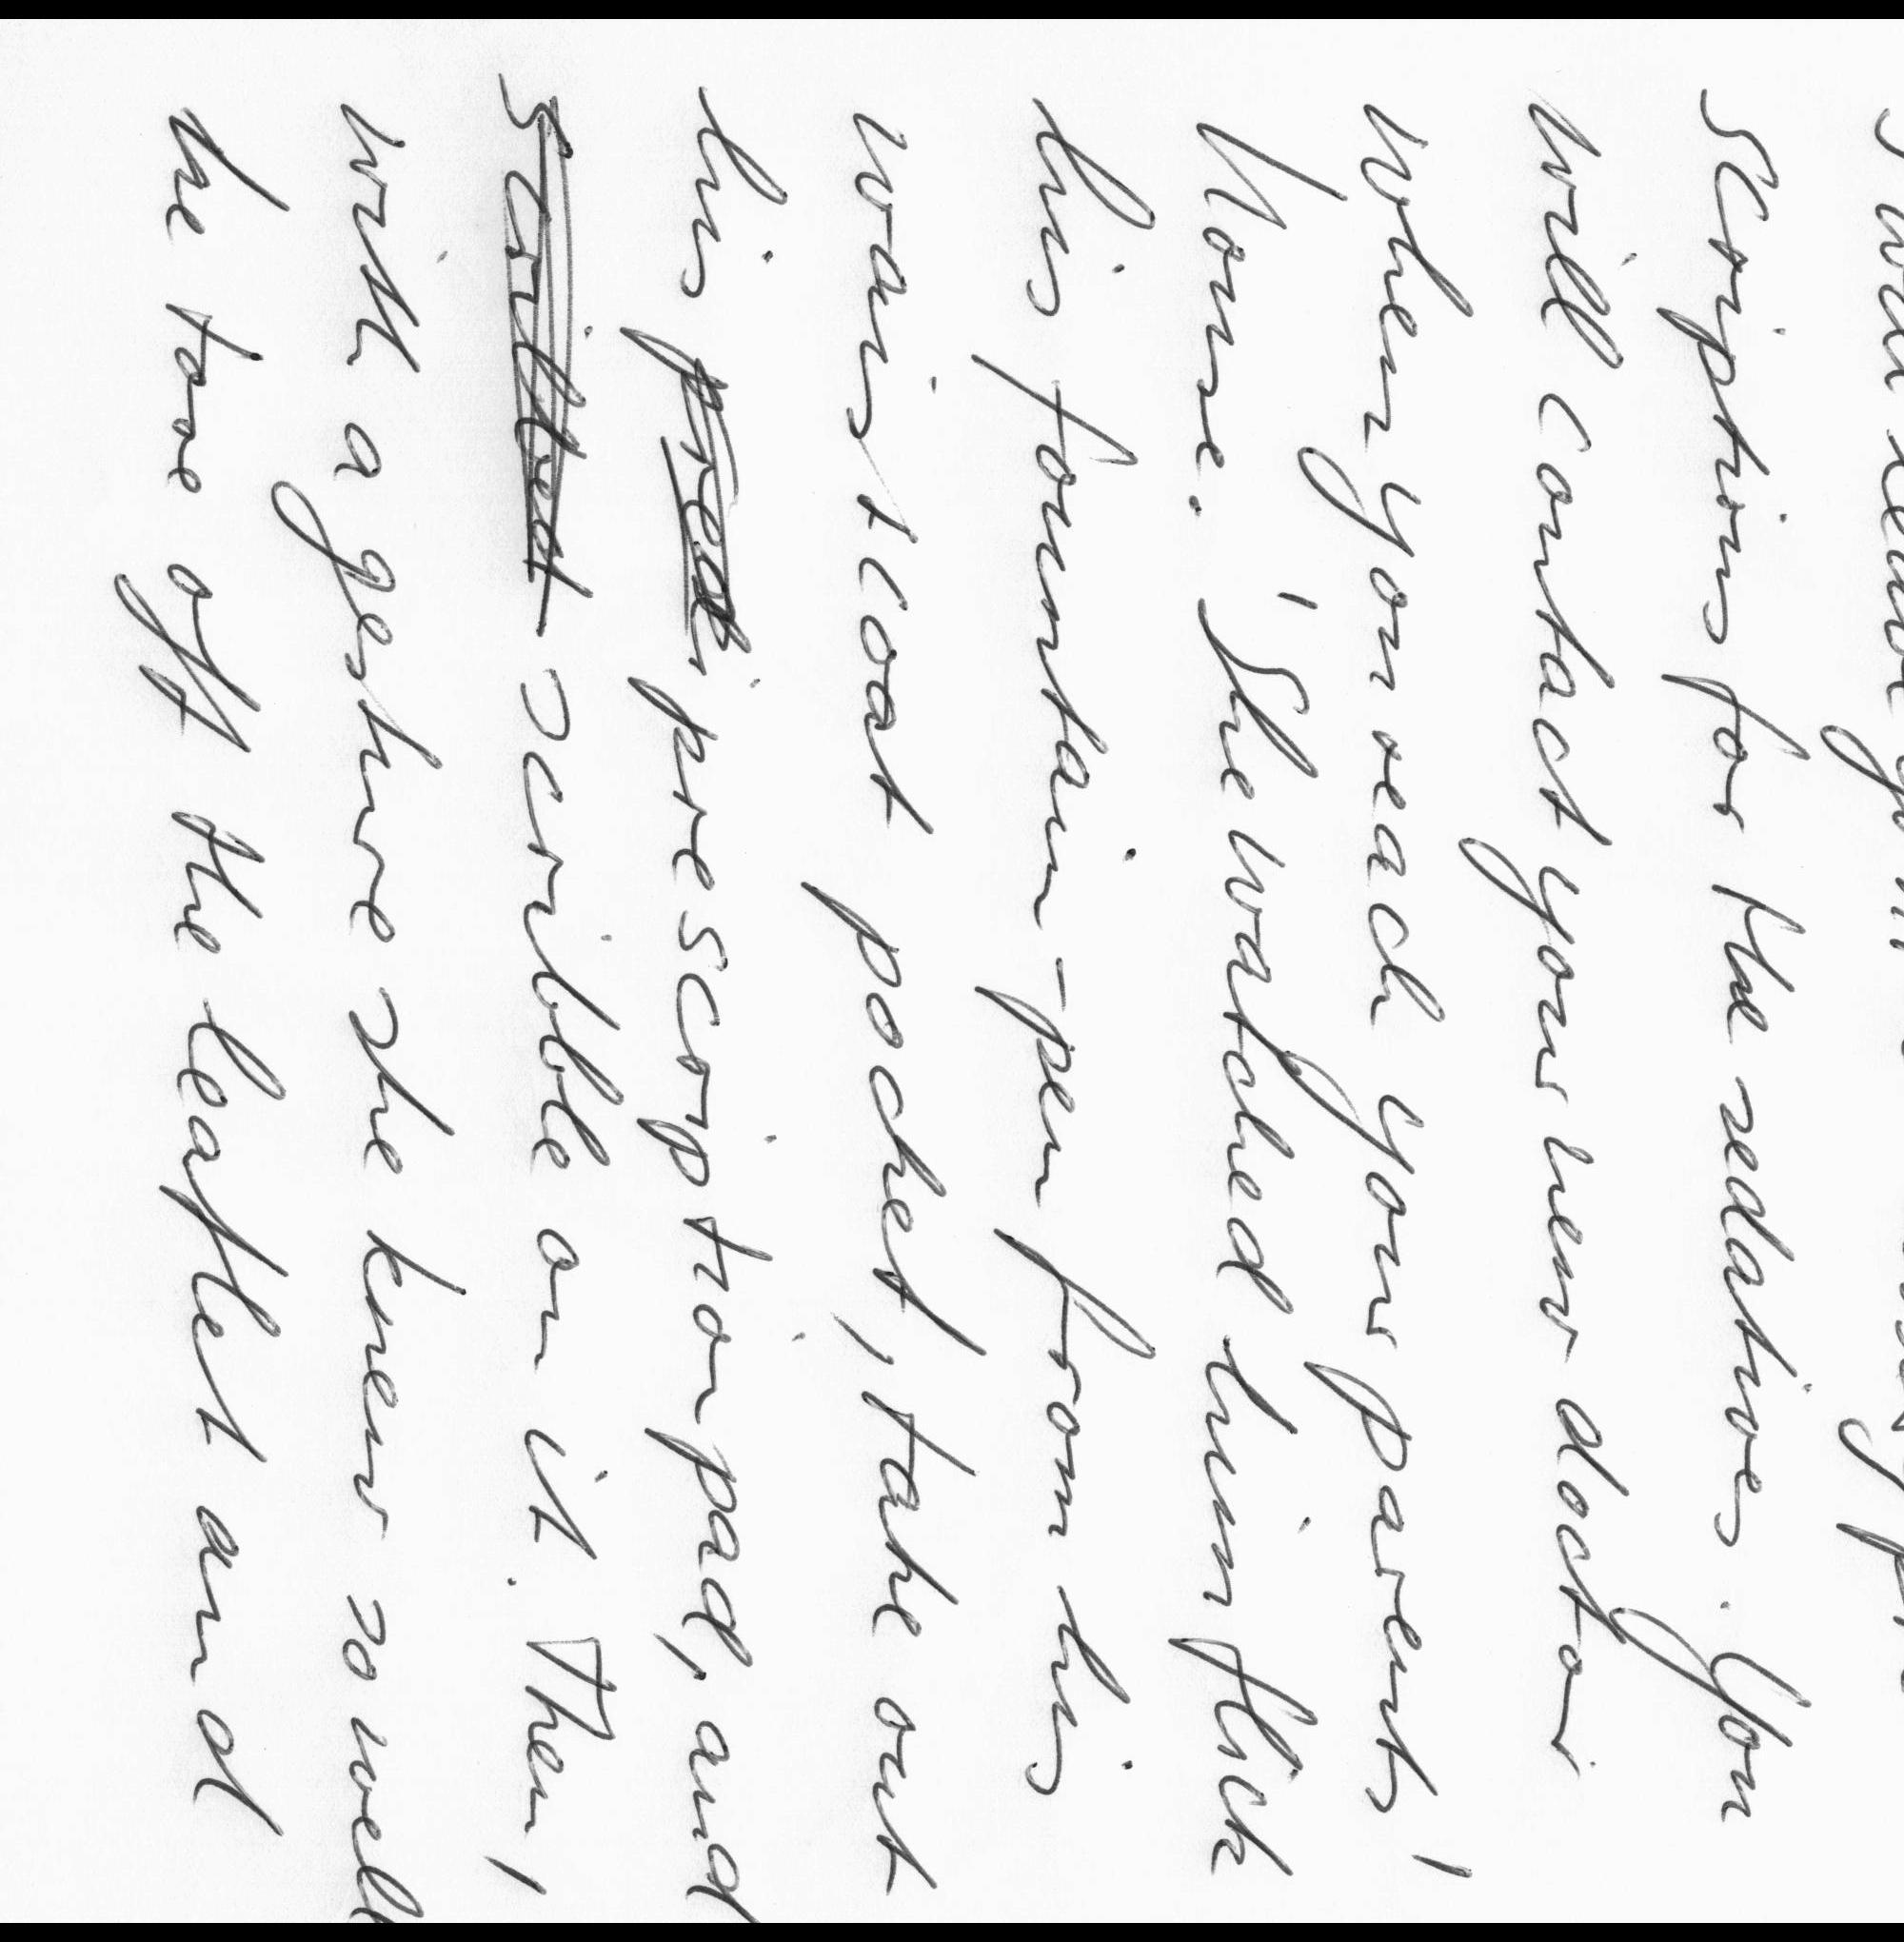 scriptions for the sedatives. You
will contact your new doctor
when you reach your parents'
House.' She watched him flick
his fountain-pen from his
waistcoat pocket, take out
his prescription pad, and
scribble on it. Then,
with a gesture she knew so well
he tore off the leaflet and